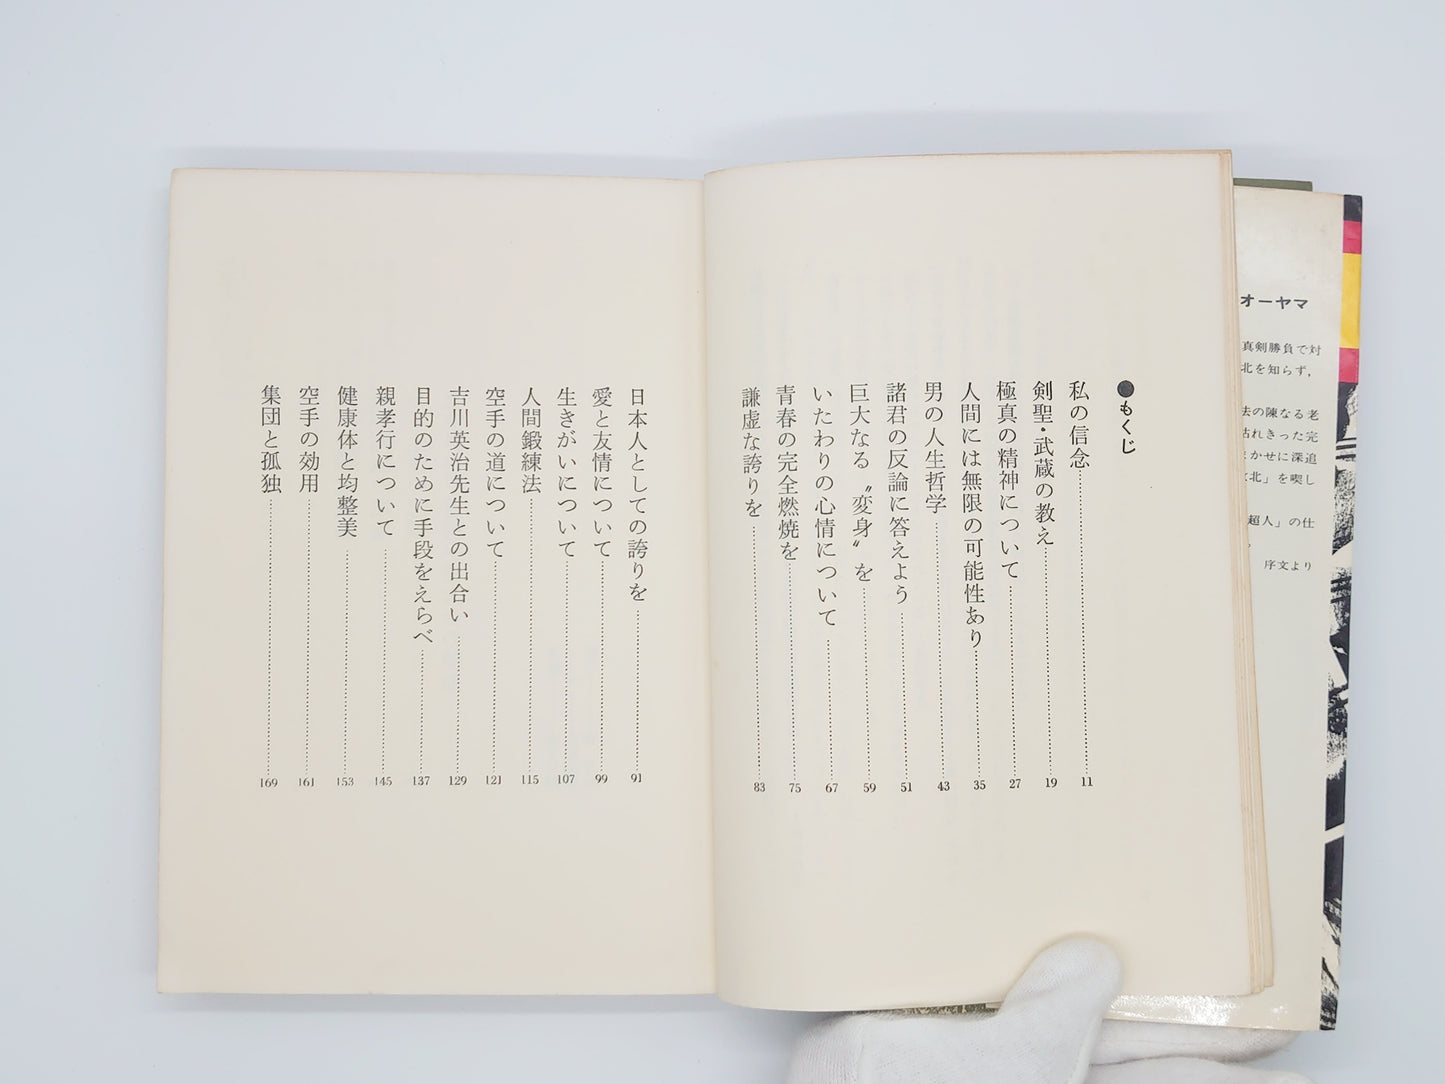 ●もくじ
私の信念 11
剣聖・武蔵の教え 19
極真の精神について 27
人間には無限の可能性あり 35
男の人生哲学 43
諸君の反論に答えよう 51
巨大なる〝変身〟を 59
いたわりの心情について 67
青春の完全燃焼を 75
謙虚な誇りを 83
日本人としての誇りを 91
愛と友情について 99
生きがいについて 107
人間鍛練法 115
空手の道について 121
吉川英治先生との出合い 129
目的のために手段をえらべ 137
親孝行について 145
健康体と均整美 153
空手の効用 161
集団と孤独 169
オーヤマ
真剣勝負で対
北を知らず，
法の陳なる老
枯れきった完
まかせに深追
北」を喫し
超人」の仕
序文より